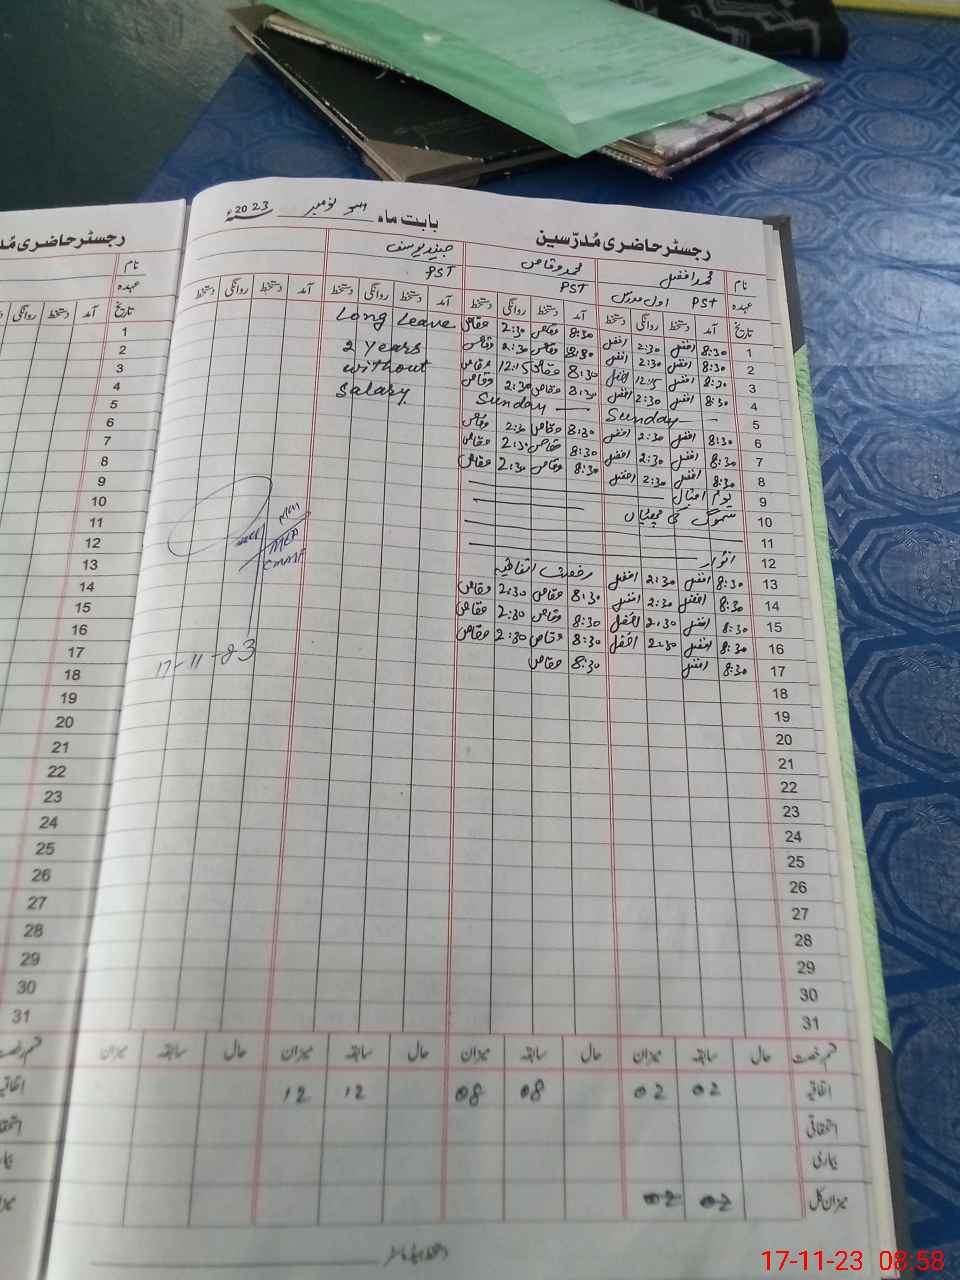 رجسٹر حاضری مُدرّسین بابت ماہ نومبر 2023ء
نام محمد افضل محمد وقاص جنید یوسف
عہدہ PST اول مدرس PST PST
تاریخ آمد دستخط روانگی دستخط آمد دستخط روانگی دستخط آمد دستخط روانگی دستخط آمد دستخط روانگی دستخط
1 8:30 افضل 2:30 افضل 8:30 وقاص 2:30 وقاص Long Leave
2 8:30 افضل 2:30 افضل 8:30 وقاص 2:30 وقاص 2 Years
3 8:30 افضل 12:15 افضل 8:30 وقاص 12:15 وقاص without
4 8:30 افضل 2:30 افضل 8:30 وقاص 2:30 وقاص Salary
5 Sunday Sunday
6 8:30 افضل 2:30 افضل 8:30 وقاص 2:30 وقاص
7 8:30 افضل 2:30 افضل 8:30 وقاص 2:30 وقاص
8 8:30 افضل 2:30 افضل 8:30 وقاص 2:30 وقاص
9 یوم اقبال
10 سموگ کی چھٹیاں
11
12 اتوار
13 8:30 افضل 2:30 افضل رخصت اتفاقیہ
14 8:30 افضل 2:30 افضل 8:30 وقاص 2:30 وقاص
15 8:30 افضل 2:30 افضل 8:30 وقاص 2:30 وقاص
16 8:30 افضل 2:30 افضل 8:30 وقاص 2:30 وقاص
17 8:30 افضل 8:30 وقاص
MEA
17-11-23
18
19
20
21
22
23
24
25
26
27
28
29
30
31
قسم رخصت حال سابقہ میزان حال سابقہ میزان حال سابقہ میزان حال سابقہ میزان
اتفاقیہ 02 02 08 08 12 12
استحقاقی
بیماری
میزان کل 02 02
دستخط ہیڈ ماسٹر
رجسٹر حاضری
نام
عہدہ
تاریخ آمد دستخط روانگی
1
2
3
4
5
6
7
8
9
10
11
12
13
14
15
16
17
18
19
20
21
22
23
24
25
26
27
28
29
30
31
17-11-23 08:58